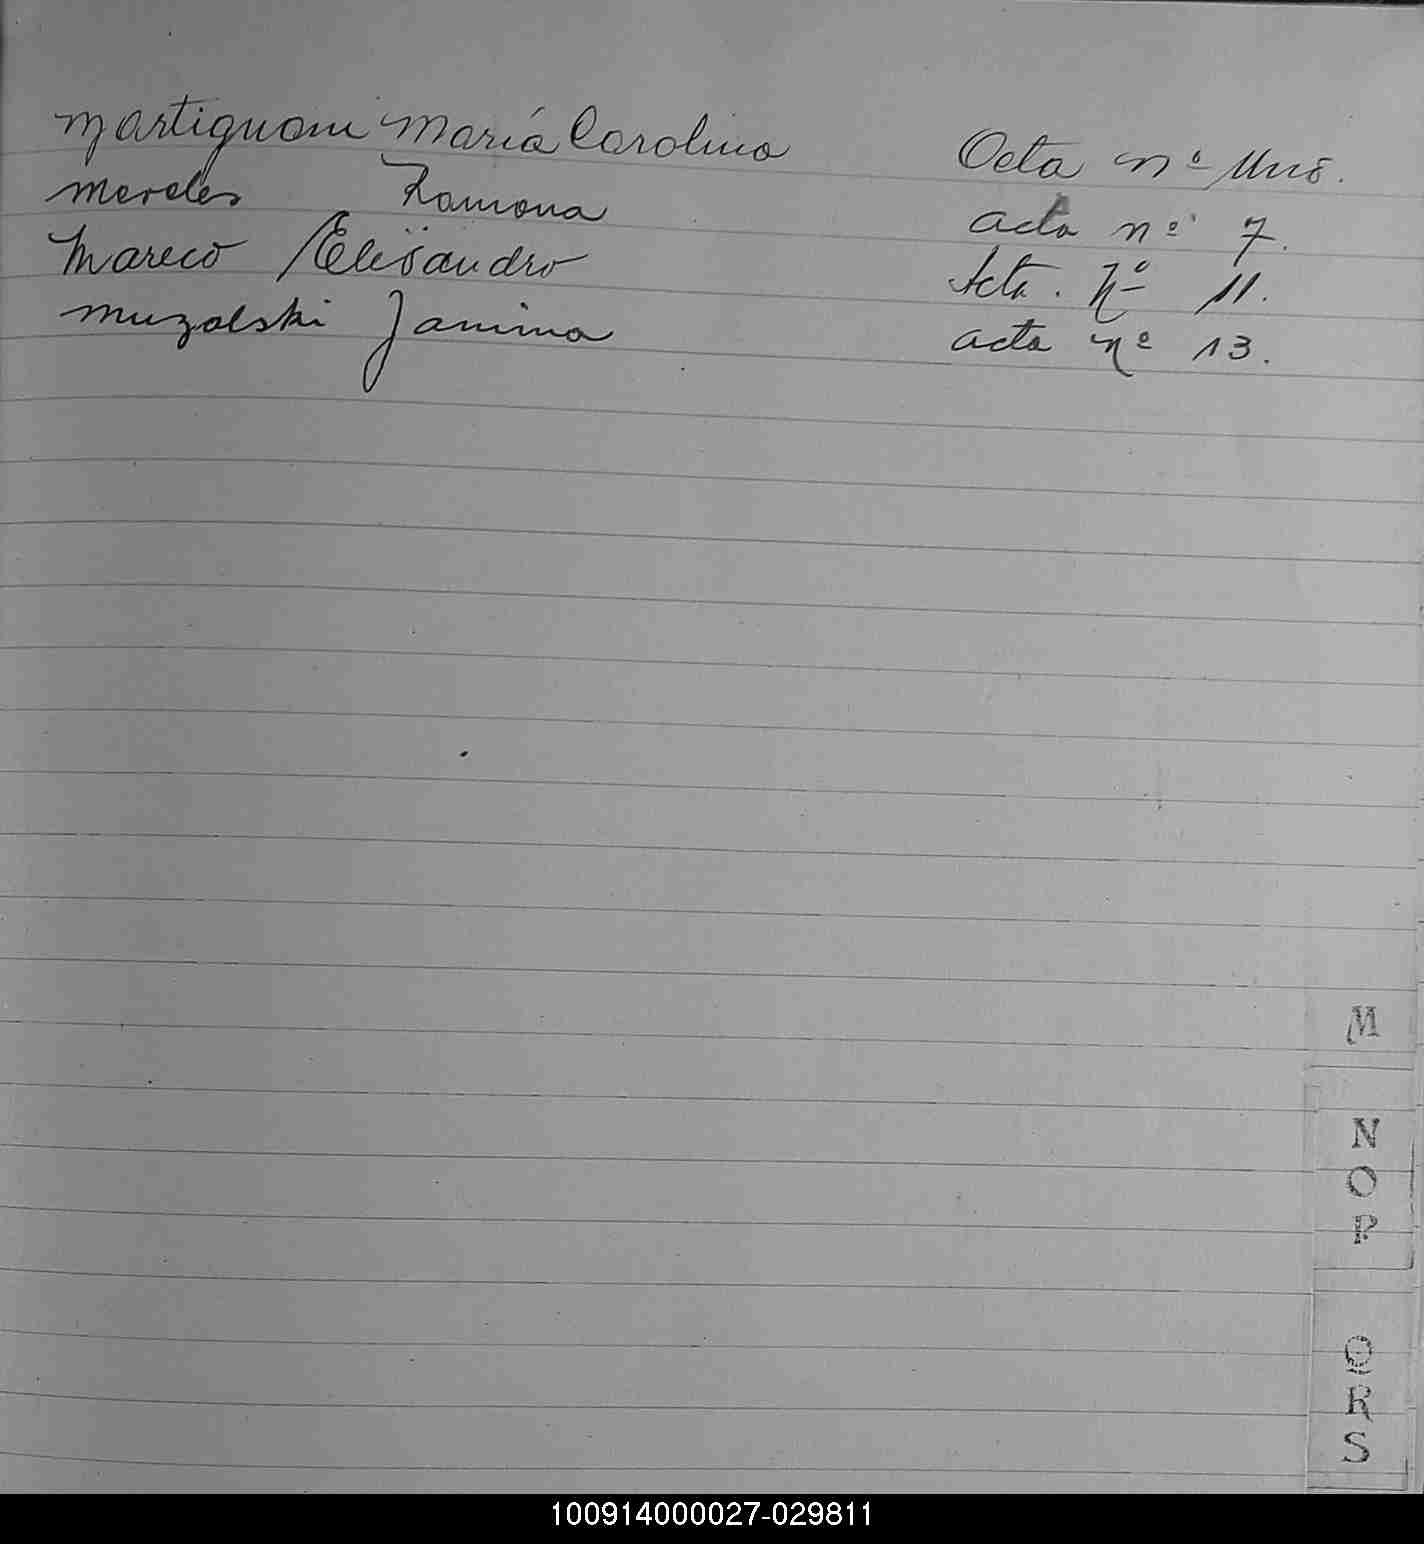 Martignoni María Carolina Acta nº Uno.
Mereles Ramona acta nº 7.
Mareco Elisandro Acta. Nº 11.
Muzalski Janina acta nº 13.
M
N
O
P
Q
R
S
100914000027-029811